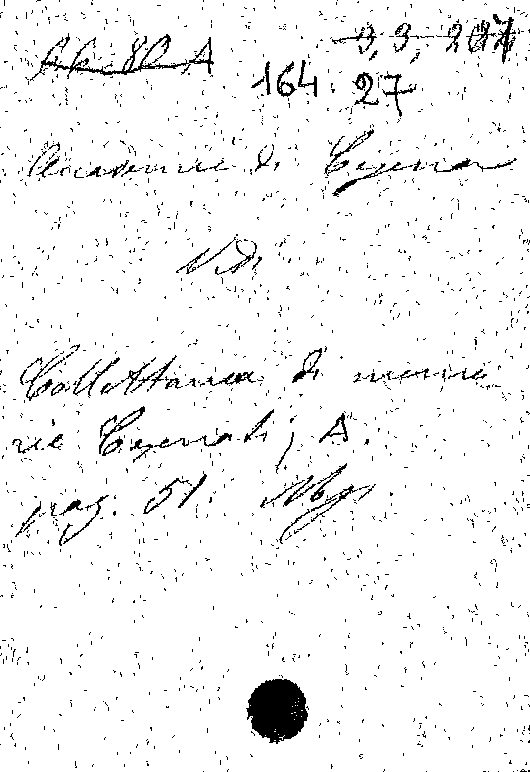 164. 27
Accademie di Cesena
Vedi
Collettanea di memo
rie Cesenati; A.
pag. 51. Ms.